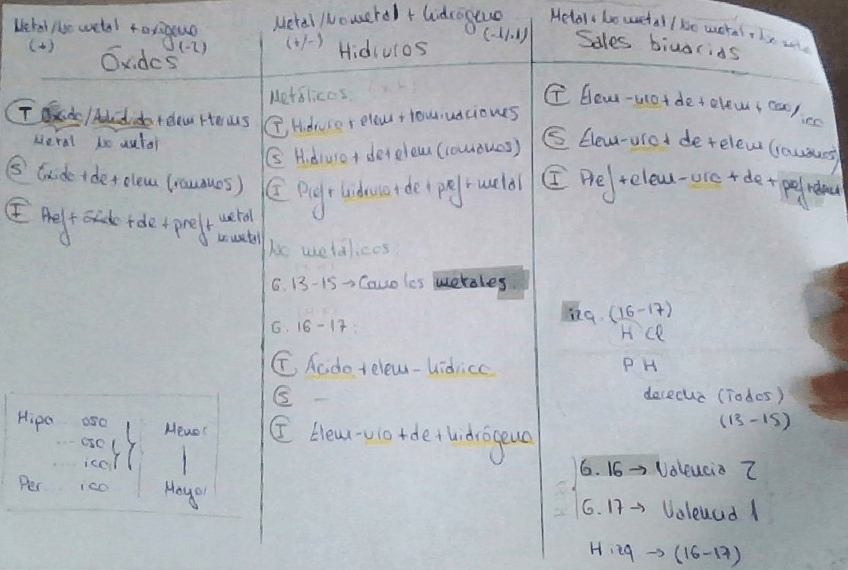 Metal/No metal + oxígeno
(+) (-2)
Óxidos
Ⓣ Óxido/Anhídrido + elem + terms
Metal No metal
Ⓢ Óxido + de + elem (romanos)
Ⓘ Pref + óxido + de + pref + metal
no metal
Hipo ... oso
... oso
... ico
Per ... ico
Menor
|
Mayor
Metal/No metal + hidrógeno
(+/-) (-1/+1)
Hidruros
Metálicos:
Ⓣ Hidruro + elem + terminaciones
Ⓢ Hidruro + de + elem (romanos)
Ⓘ Pref + hidruro + de + pref + metal
No metálicos:
G. 13-15 → Como los metales.
G. 16-17:
Ⓣ Ácido + elem - hídrico
Ⓢ -
Ⓘ Elem-uro + de + hidrógeno
Metal + No metal / No metal + No metal
Sales binarias
Ⓣ Elem-uro + de + elem + oso/ico
Ⓢ Elem-uro + de + elem (romanos)
Ⓘ Pref + elem-uro + de + pref + elem
izq. (16-17)
H Cl
P H
derecha (Todos)
(13-15)
G. 16 → Valencia 2
G. 17 → Valencia 1
H izq → (16-17)